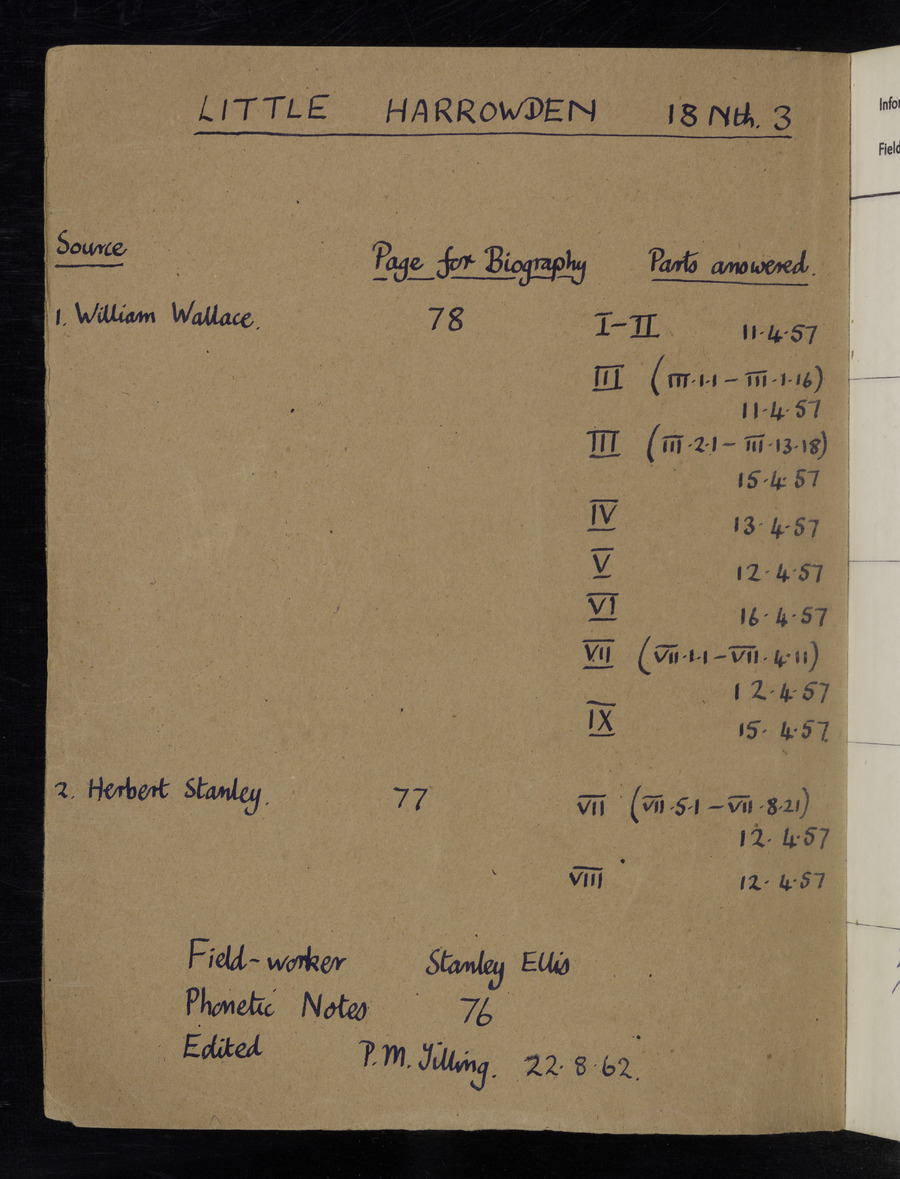 LITTLE HARROWDEN 18 Nth. 3
Source Page for Biography Parts answered.
1. William Wallace. 78 I-II 11.4.57
III (III.1.1 – III.1.16)
11.4.57
III (III.2.1 – III.13.18)
15.4.57
IV 13.4.57
V 12.4.57
VI 16.4.57
VII (VII.1.1 – VII.4.11)
12.4.57
IX 15.4.57.
2. Herbert Stanley. 77 VII (VII.5.1 – VII.8.21)
12.4.57
VIII 12.4.57
Field-worker Stanley Ellis
Phonetic Notes 76
Edited P.M. Tilling. 22.8.62.